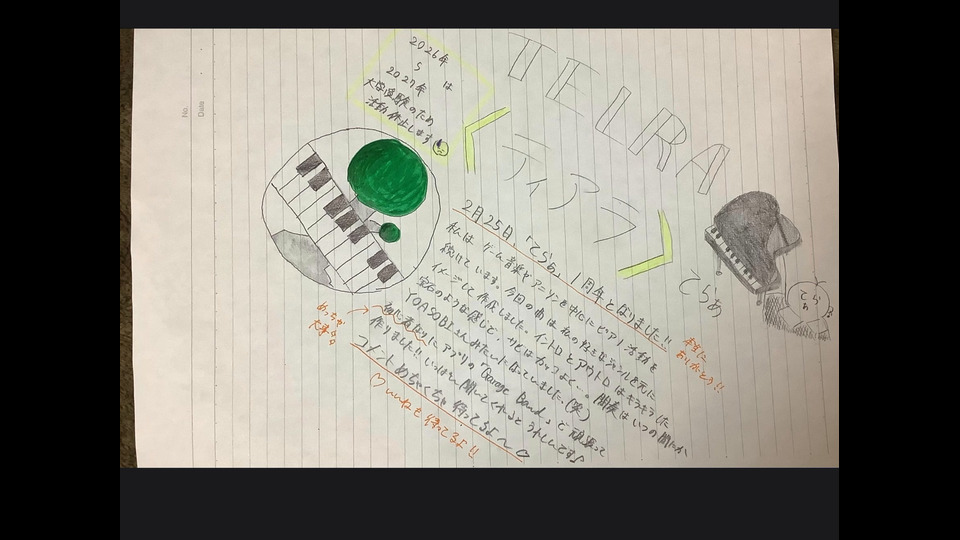 No.
Date
2026年
〜 は
2027年
大学受験のため
活動休止します
TELRA
《ティアラ》
てらぁ
てらぁ
2月25日、「てらぁ」1周年となりました!!
本当に
ありがとう!!
私はゲーム音楽やアニソンを中心にピアノ活動を
続けています。今回の曲は私の好きなジャンルを元に
イメージして作成しました。イントロとアウトロはキラキラした
宝石のような感じで、サビはカッコよく…。間奏はいつの間にか
YOASOBIさんみたいになっていました。(笑)
にアプリの「Garage Band」と頑張って
作りました!! いっぱい聞いてくれるとうれしいです♪
めっちゃ
大事
コメントめちゃくちゃ待ってるよ〜♡
♡いいねも待ってるよ!!